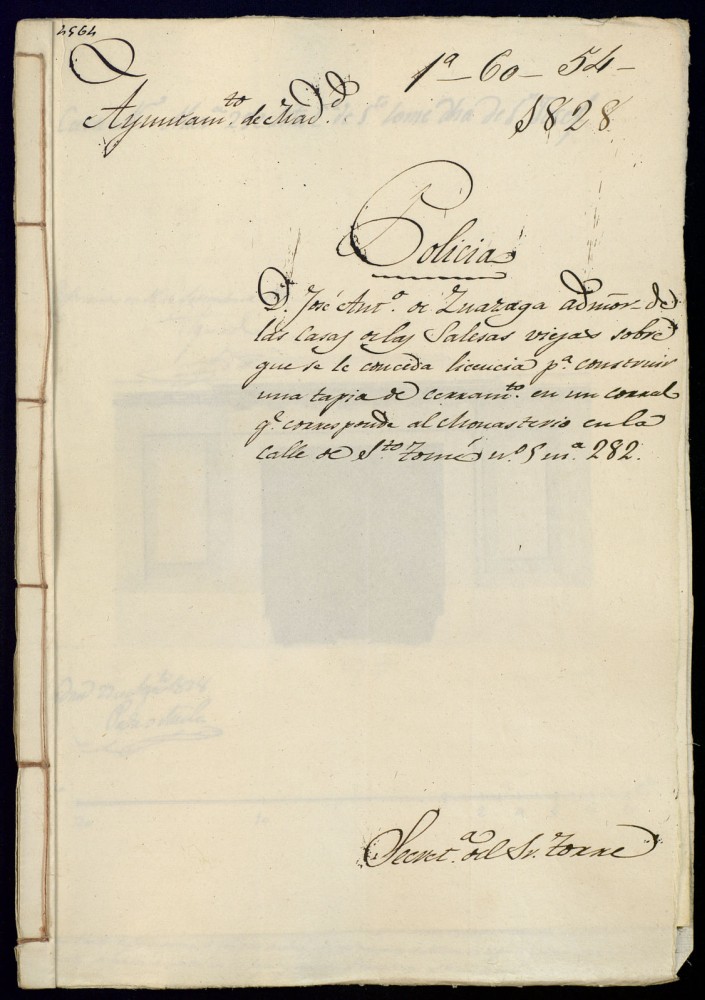 4564
1ª - 60 - 54 -
Ayuntam.to de Mad.d
1828
Policia
D. José Ant.o de Zuazaga admōr de
las casas de las Salesas viejas sobre
que se le conceda licencia p.a construir
una tapia de cerram.to en un corral
q.e corresponde al Monasterio en la
calle de S.to Tomé n.o 5 m.a 282.
Secret.a del Sr. Torre